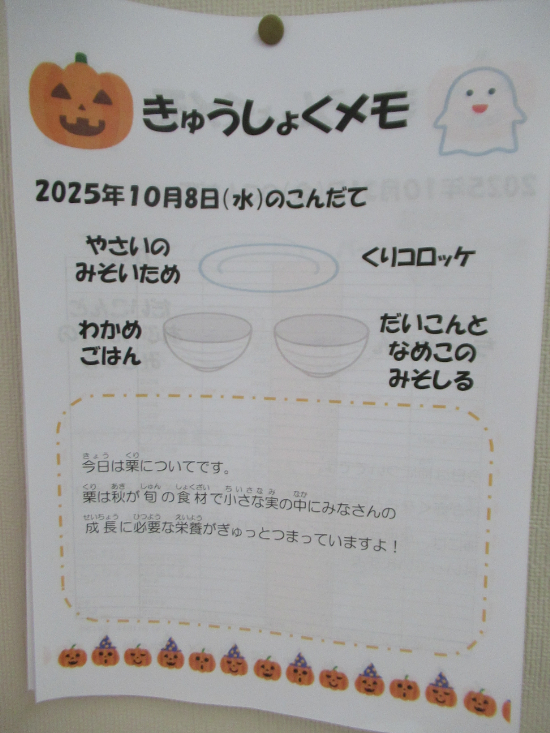 きゅうしょくメモ
2025年10月8日(水)のこんだて
やさいの
みそいため
くりコロッケ
わかめ
ごはん
だいこんと
なめこの
みそしる
今日は栗についてです。
栗は秋が旬の食材で小さな実の中にみなさんの
成長に必要な栄養がぎゅっとつまっていますよ！